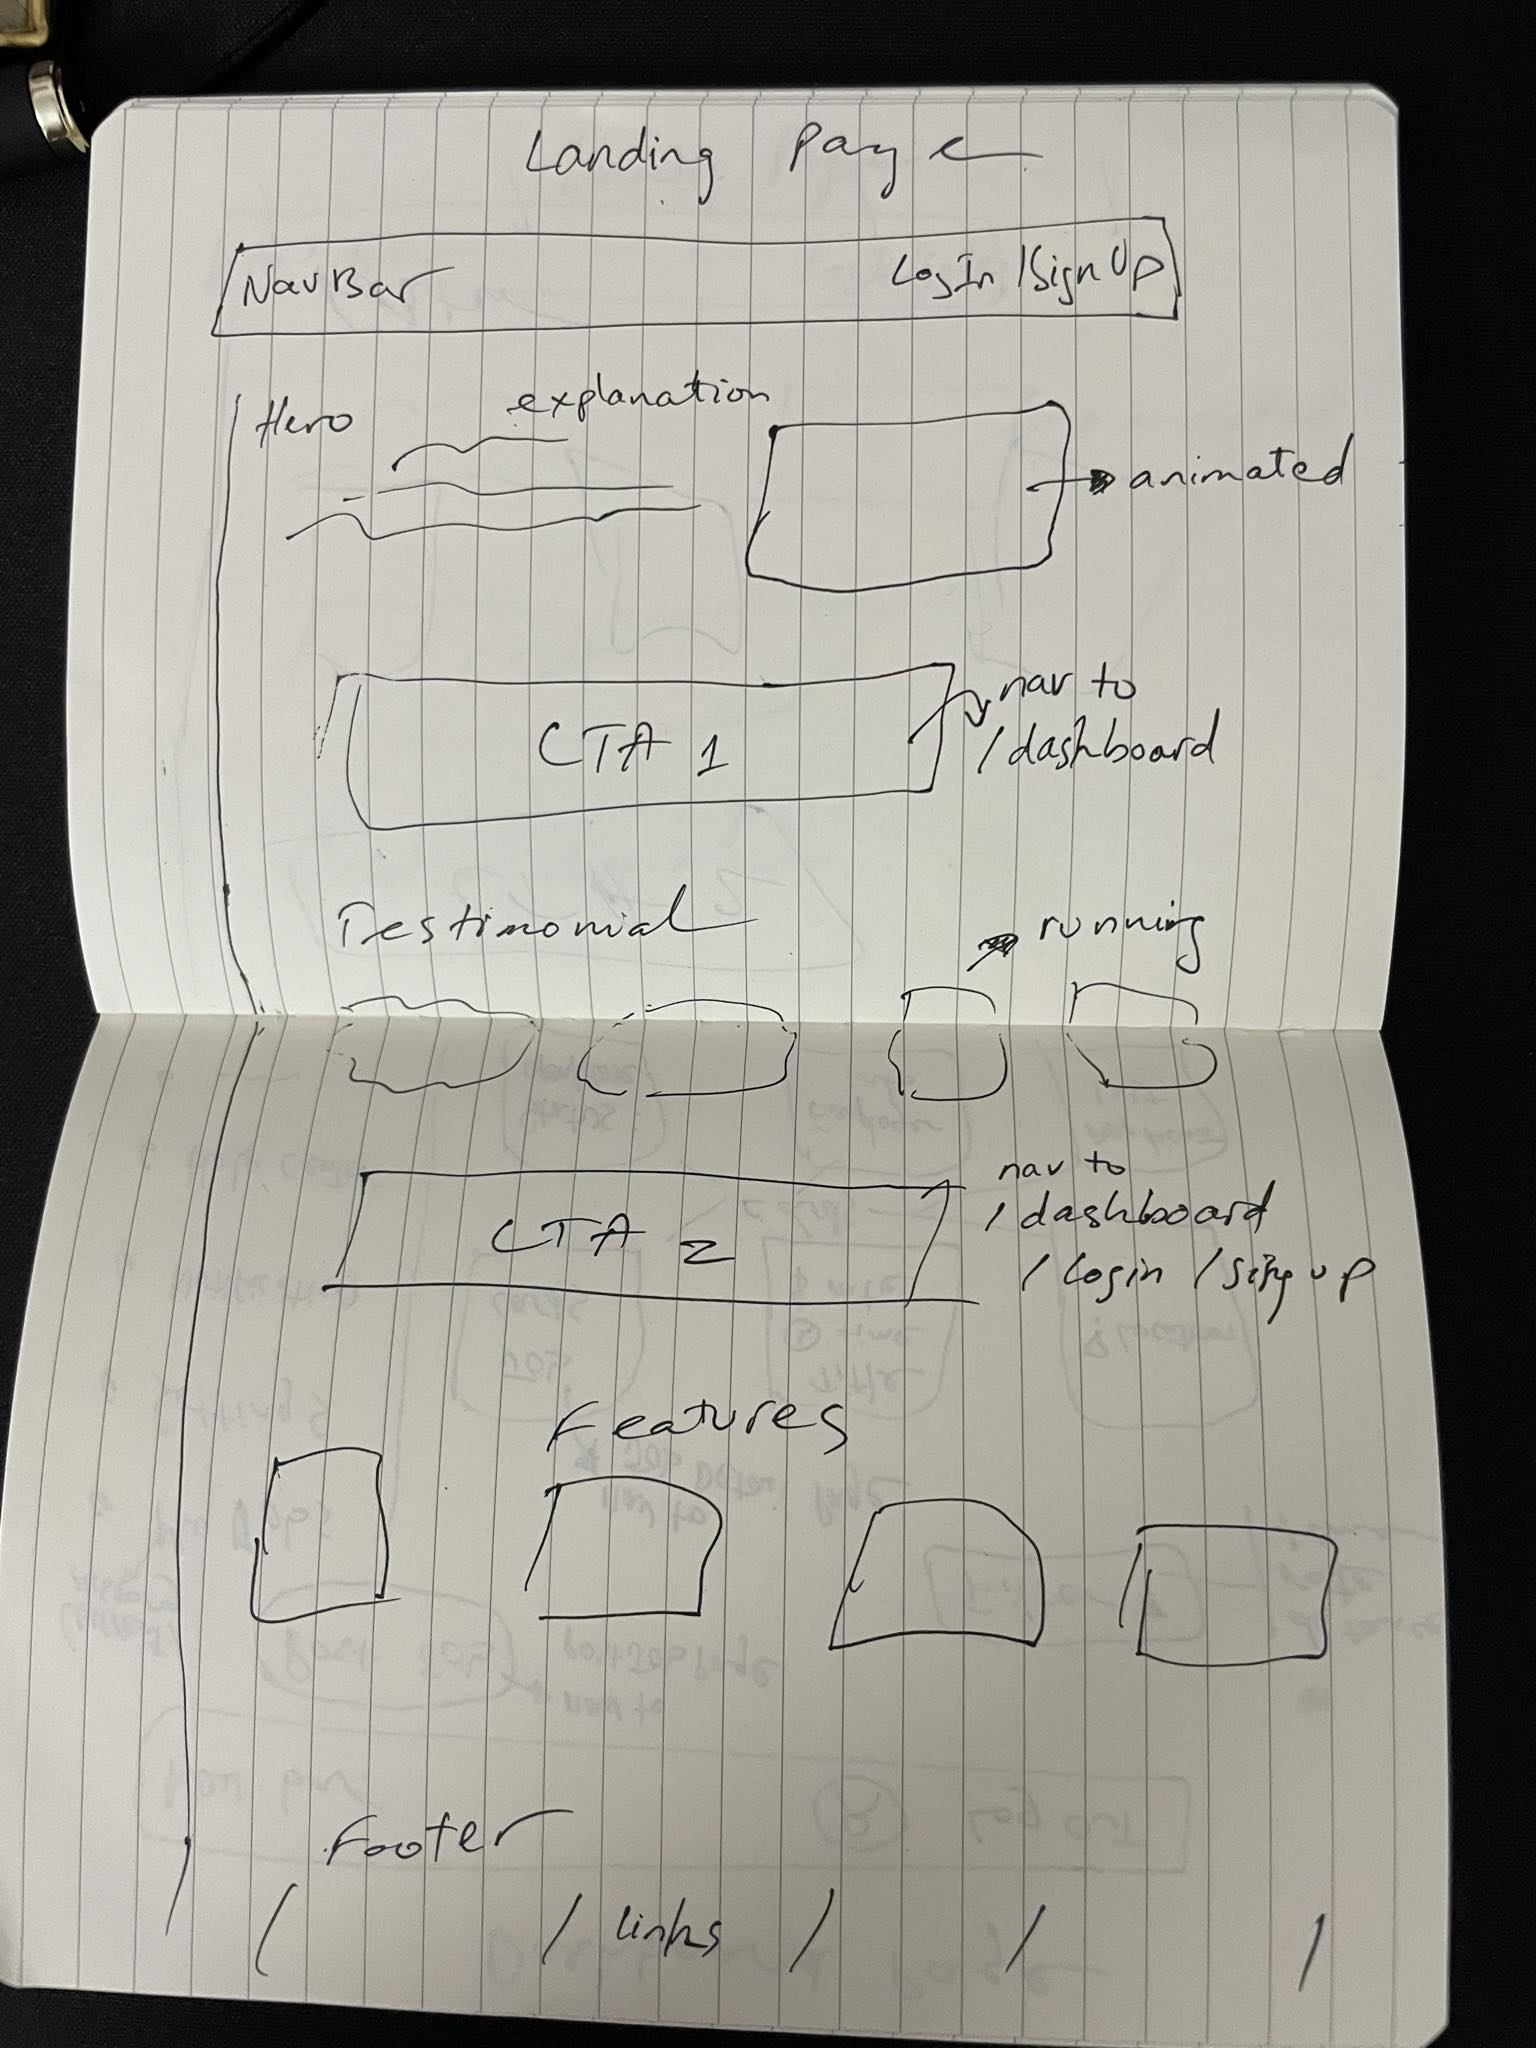 Landing Page
NavBar LogIn/SignUp
Hero explanation
animated
CTA 1
nav to
/dashboard
Testimonial
running
CTA 2
nav to
/dashboard
/login /signup
Features
Footer
/ / links / / /